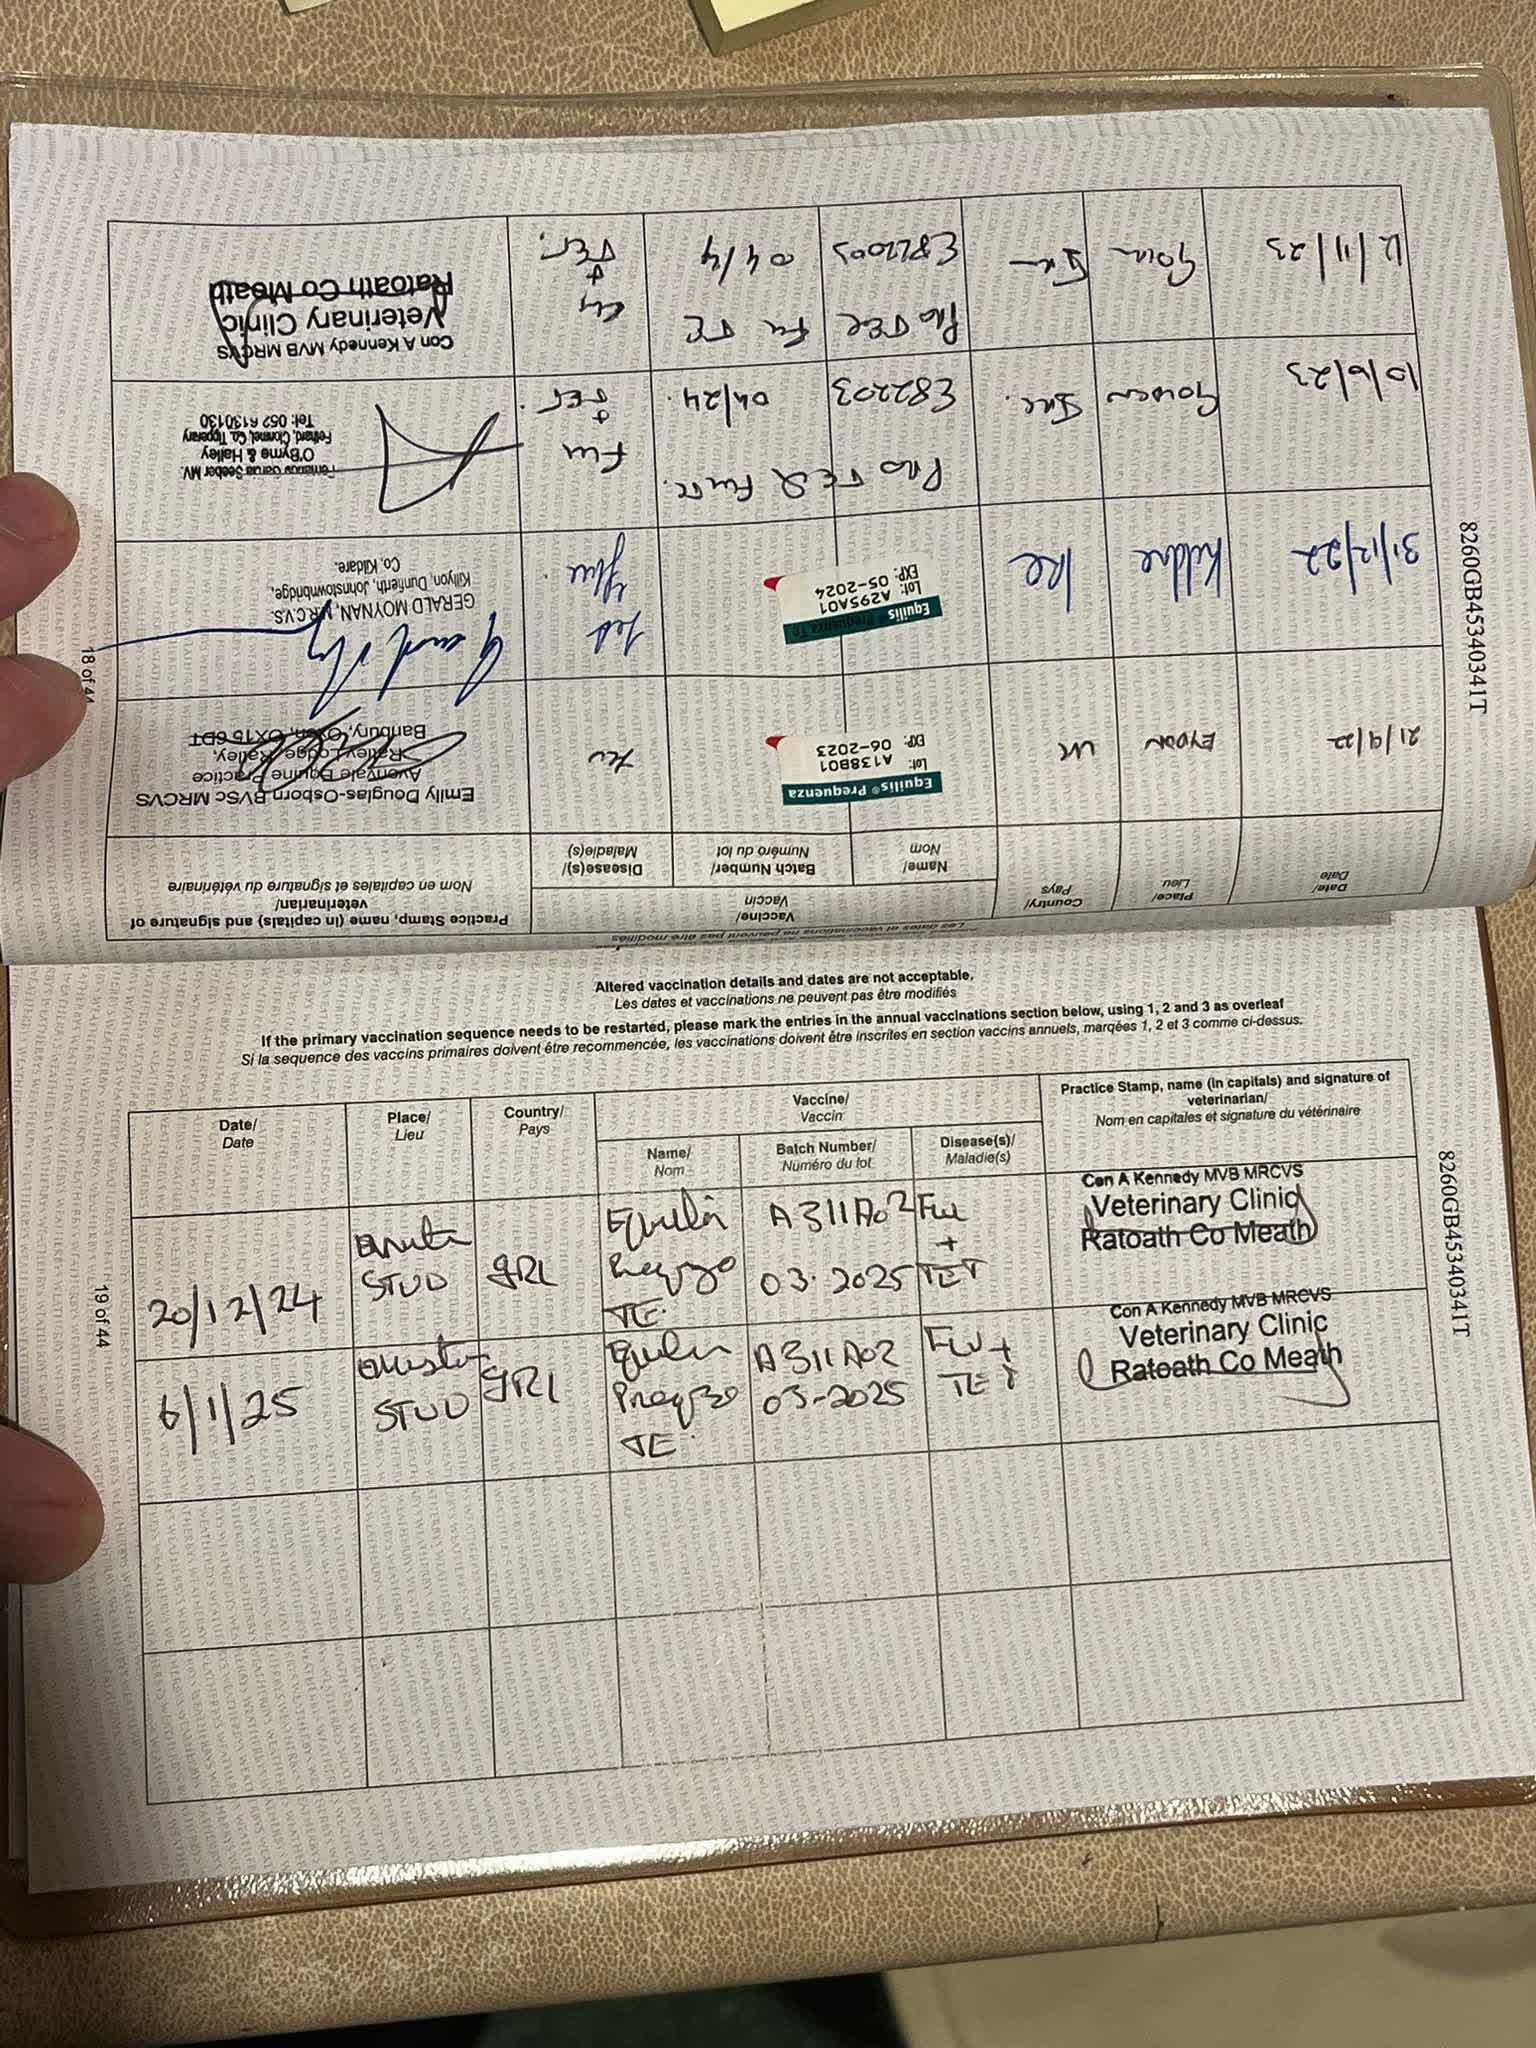 Practice Stamp, name (in capitals) and signature of
veterinarian/
Nom en capitales et signature du vétérinaire
Vaccine/
Vaccin
Disease(s)/
Maladie(s)
Batch Number/
Numéro du lot
Name/
Nom
Country/
Pays
Place/
Lieu
Date/
Date
21/9/22
EYDON
UK
Equilis® Prequenza
Lot: A138B01
EXP: 06-2023
Flu
Emily Douglas-Osborn BVSc MRCVS
Avonvale Equine Practice
Ratley Lodge, Ratley,
Banbury, Oxon, OX15 6DT
31/12/22
Kildare
IRE
Equilis Prequenza Te
Lot: A295A01
EXP: 05-2024
Tet
Flu
GERALD MOYNAN, M.R.C.V.S.
Killyon, Dunfierth, Johnstownbridge,
Co. Kildare.
10/6/23
IRE.
Pro TEQ Flu TE.
E82203
04/24.
Flu
+
TET.
Fernando Garcia Seeber MV.
O'Byrne & Halley
Fethard, Clonmel, Co. Tipperary
Tel: 052 6130130
12/11/23
Pro TEQ Flu TE
04/4
+
TET.
Con A Kennedy MVB MRCVS
Veterinary Clinic
Ratoath Co Meath
8260GB45340341T
18 of 44
Les dates et vaccinations ne peuvent pas être modifiés
Altered vaccination details and dates are not acceptable.
Les dates et vaccinations ne peuvent pas être modifiés
If the primary vaccination sequence needs to be restarted, please mark the entries in the annual vaccinations section below, using 1, 2 and 3 as overleaf
Si la sequence des vaccins primaires doivent être recommencée, les vaccinations doivent être inscrites en section vaccins annuels, marqées 1, 2 et 3 comme ci-dessus.
Date/
Date
Place/
Lieu
Country/
Pays
Vaccine/
Vaccin
Name/
Nom
Batch Number/
Numéro du lot
Disease(s)/
Maladie(s)
Practice Stamp, name (in capitals) and signature of
veterinarian/
Nom en capitales et signature du vétérinaire
20/12/24
STUD
IRL
TE.
A311A02
03.2025
Flu
+
TET
Con A Kennedy MVB MRCVS
Veterinary Clinic
Ratoath Co Meath
6/1/25
STUD
IRL
TE.
A311A02
03-2025
Flu +
TET
Con A Kennedy MVB MRCVS
Veterinary Clinic
Ratoath Co Meath
8260GB45340341T
19 of 44